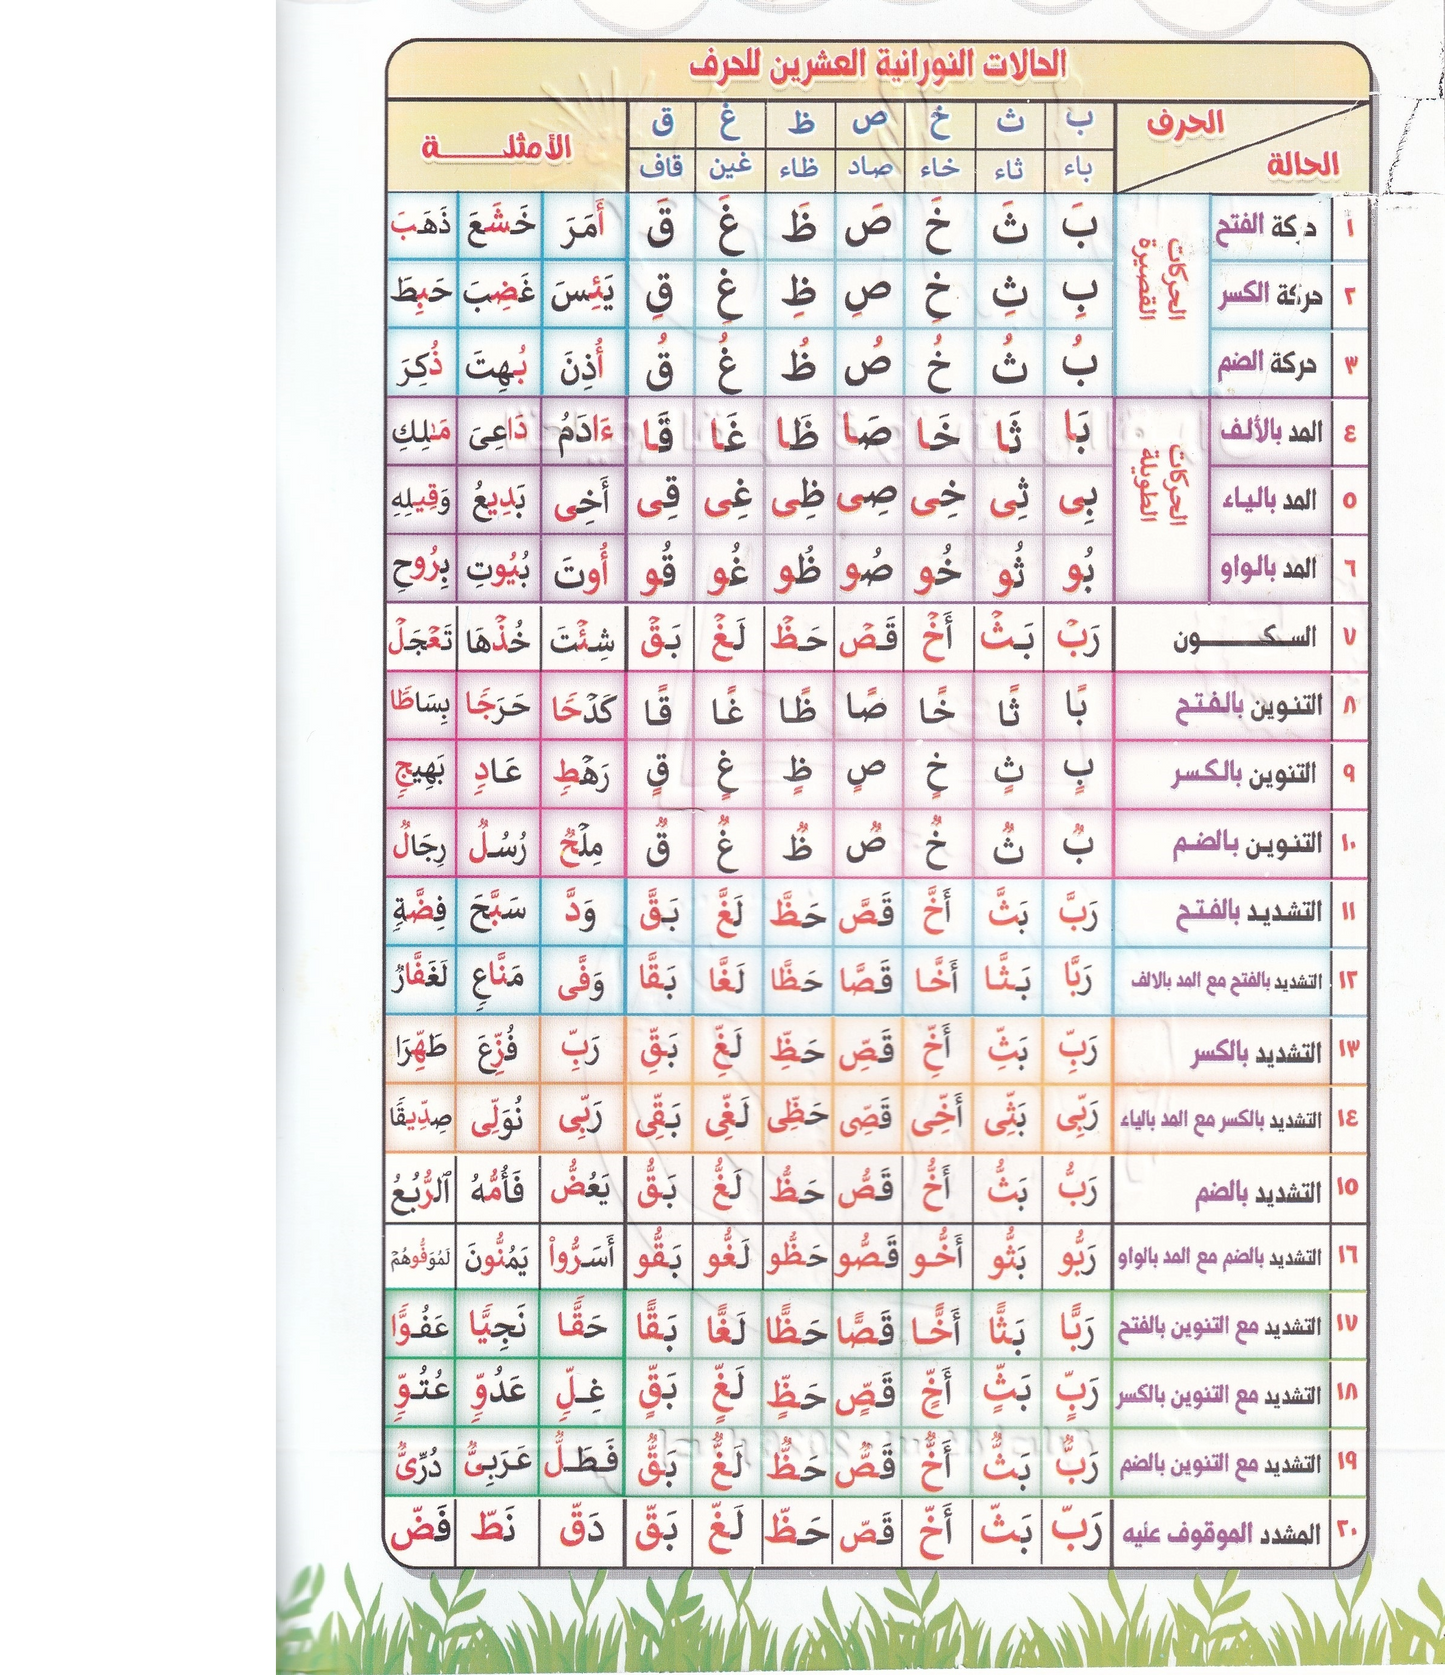 الحالات النورانية العشرين للحرف
الحرف ب ث خ ص ظ غ ق الأمثلـــــــة
الحالة باء ثاء خاء صاد ظاء غين قاف
الحركات القصيرة
١ حركة الفتح بَ ثَ خَ صَ ظَ غَ قَ أَمَرَ خَشَعَ ذَهَبَ
٢ حركة الكسر بِ ثِ خِ صِ ظِ غِ قِ يَئِسَ غَضِبَ حَبِطَ
٣ حركة الضم بُ ثُ خُ صُ ظُ غُ قُ أُذِنَ بُهِتَ ذُكِرَ
الحركات الطويلة
٤ المد بالألف بَا ثَا خَا صَا ظَا غَا قَا ءَادَمُ دَاعِىَ مَـٰلِكِ
٥ المد بالياء بِى ثِى خِى صِى ظِى غِى قِى أَخِى بَدِيعُ وَقِيلِهِ
٦ المد بالواو بُو ثُو خُو صُو ظُو غُو قُو أُوتَ بُيُوتِ بِرُوحِ
٧ الســكــــــــون رَبْ بَـثْ أَخْ قَـصْ حَـظْ لَـغْ بَـقْ شِئْتَ خُذْهَا تَعْجَلْ
٨ التنوين بالفتح بًا ثًا خًا صًا ظًا غًا قًا كَدْحًا حَرَجًا بِسَاطًا
٩ التنوين بالكسر بٍ ثٍ خٍ صٍ ظٍ غٍ قٍ رَهْطٍ عَـادٍ بَهِيجٍ
١٠ التنوين بالضم بٌ ثٌ خٌ صٌ ظٌ غٌ قٌ مِلْحٌ رُسُـلٌ رِجَالٌ
١١ التشديد بالفتح رَبَّ بَثَّ أَخَّ قَصَّ حَـظَّ لَغَّ بَـقَّ وَدَّ سَبَّحَ فِضَّةٍ
١٢ التشديد بالفتح مع المد بالالف رَبَّا بَـثَّـا أَخَّـا قَصَّا حَـظَّا لَغَّا بَـقَّا وَفَّى مَنَّاعٍ لَغَفَّارٌ
١٣ التشديد بالكسر رَبِّ بَثِّ أَخِّ قَصِّ حَـظِّ لَغِّ بَقِّ رَبِّ فُزِّعَ طَهِّرَا
١٤ التشديد بالكسر مع المد بالياء رَبِّى بَثِّى أَخِّى قَصِّى حَظِّى لَغِّى بَقِّى رَبِّى نُوَلِّى صِدِّيقًا
١٥ التشديد بالضم رَبُّ بَثُّ أَخُّ قَصُّ حَـظُّ لَغُّ بَـقُّ يَعُضُّ فَأُمُّهُ ٱلرُّبُعُ
١٦ التشديد بالضم مع المد بالواو رَبُّو بَثُّو أَخُّـو قَصُّو حَظُّو لَغُّو بَقُّو أَسَرُّوا۟ يَمُنُّونَ لَمُوَفُّوهُمْ
١٧ التشديد مع التنوين بالفتح رَبًّا بَـثًّا أَخًّـا قَصًّا حَظًّا لَغًّا بَـقًّا حَقًّـا نَجِيًّا عَفُـوًّا
١٨ التشديد مع التنوين بالكسر رَبٍّ بَثٍّ أَخٍّ قَصٍّ حَظٍّ لَغٍّ بَقٍّ غِـلٍّ عَدُوٍّ عُتُـوٍّ
١٩ التشديد مع التنوين بالضم رَبٌّ بَثٌّ أَخٌّ قَصٌّ حَـظٌّ لَغٌّ بَقٌّ فَـطَـلٌّ عَرَبِىٌّ دُرِّىٌّ
٢٠ المشدد الموقوف عليه رَبّ بَـثّ أَخّ قَصّ حَـظّ لَـغّ بَـقّ دَقّ نَطّ فَضّ